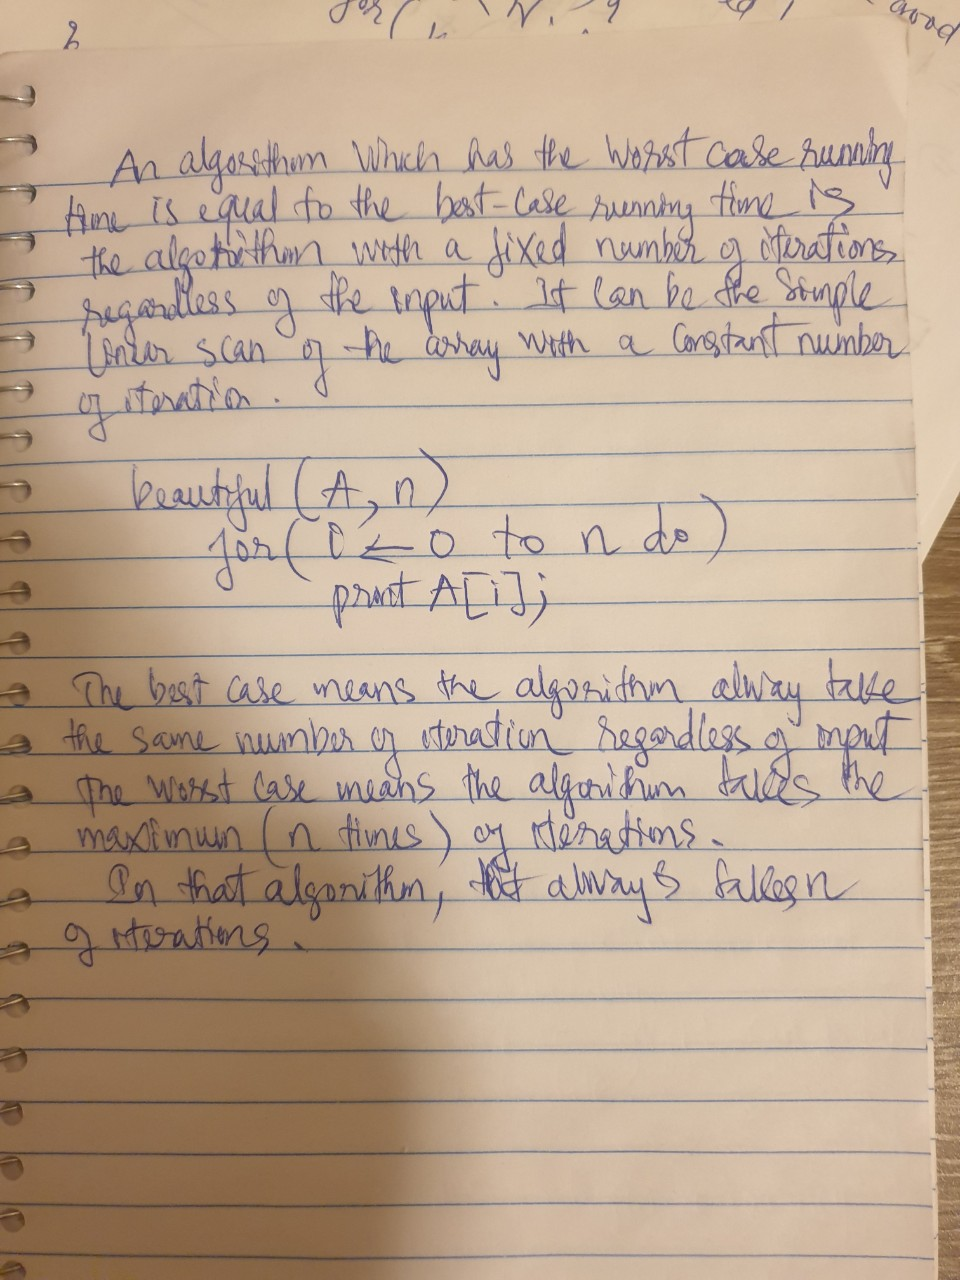 for(
good
An algorithm which has the worst case running
time is equal to the best-case running time is
the algorithm with a fixed number of iterations
regardless of the input. It can be the simple
linear scan of the array with a constant number
of iteration.
beautiful (A, n)
for( i ← 0 to n do)
print A[i];
The best case means the algorithm alway take
the same number of iteration regardless of input
The worst case means the algorithm takes the
maximum (n times) of iterations.
In that algorithm, it always takes n
of iterations.